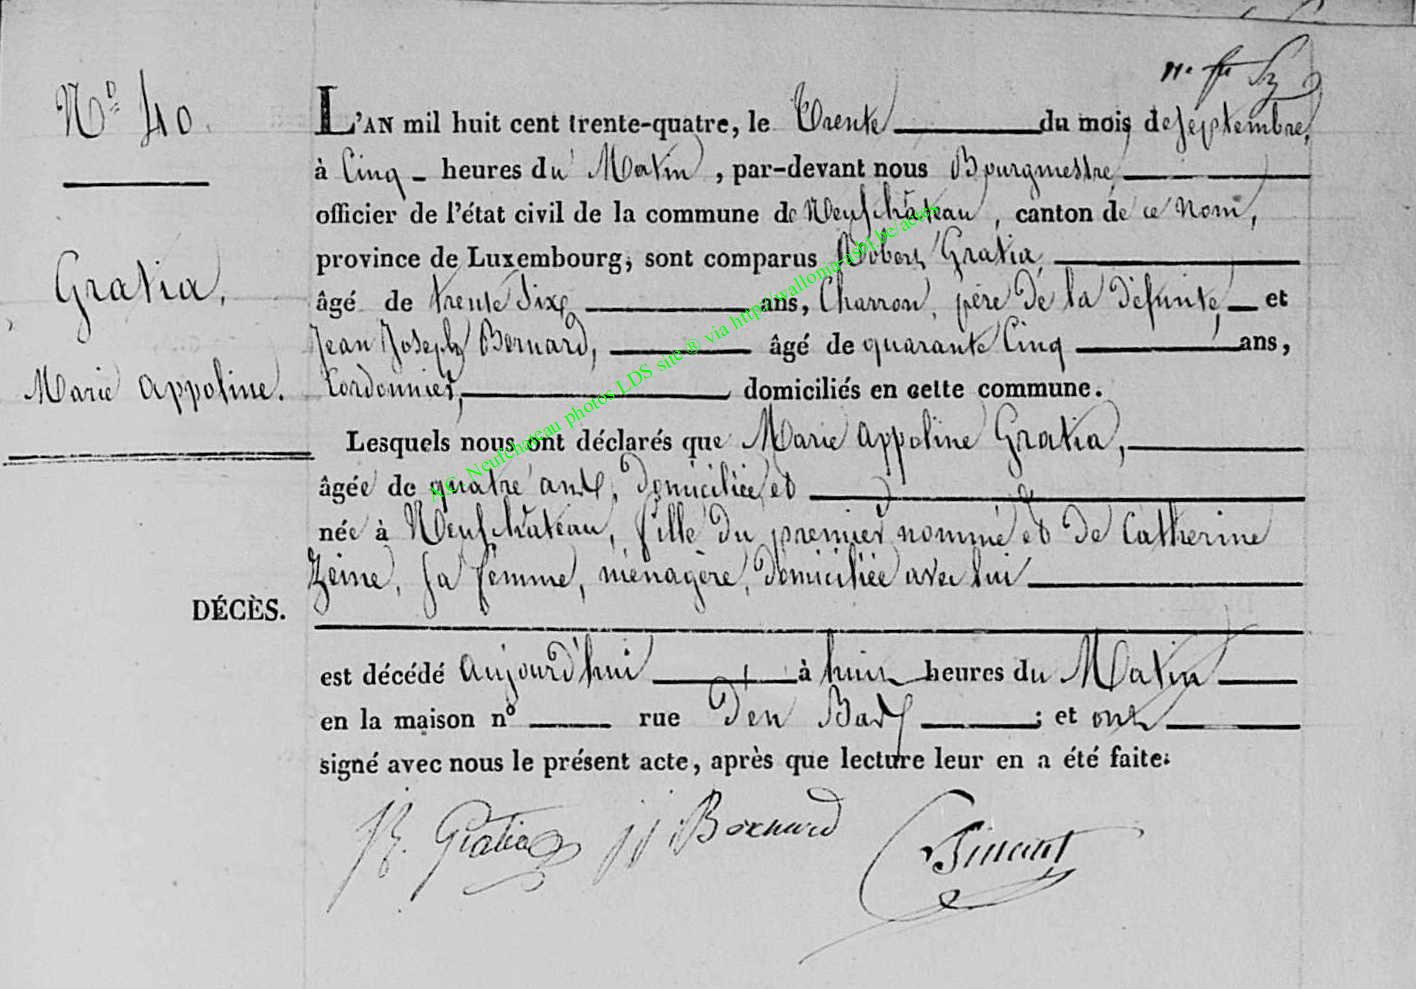 N° 40.
L'AN mil huit cent trente-quatre, le Trente du mois de septembre,
à Cinq heures du Matin, par-devant nous Bourgmestre,
officier de l'état civil de la commune de Neufchâteau, canton de ce nom,
Gratia,
province de Luxembourg, sont comparus Robert Gratia,
âgé de trente Six ans, Charron, père de la défunte, et
Jean Joseph Bernard, âgé de quarante Cinq ans,
Marie Appoline.
Cordonnier, domiciliés en cette commune.
Lesquels nous ont déclarés que Marie Appoline Gratia,
âgée de quatre ans, domiciliée et
née à Neufchâteau, fille du premier nommé et de Catherine
Zeine, sa femme, ménagère, domiciliée avec lui
DÉCÈS.
est décédé aujourd'hui à huit heures du Matin
en la maison n° rue d'en Bas ; et ont
signé avec nous le présent acte, après que lecture leur en a été faite.
R. Gratia JJ Bernard
NC Neufchateau photos LDS site @ via http://wallonia-asbl.be/actes